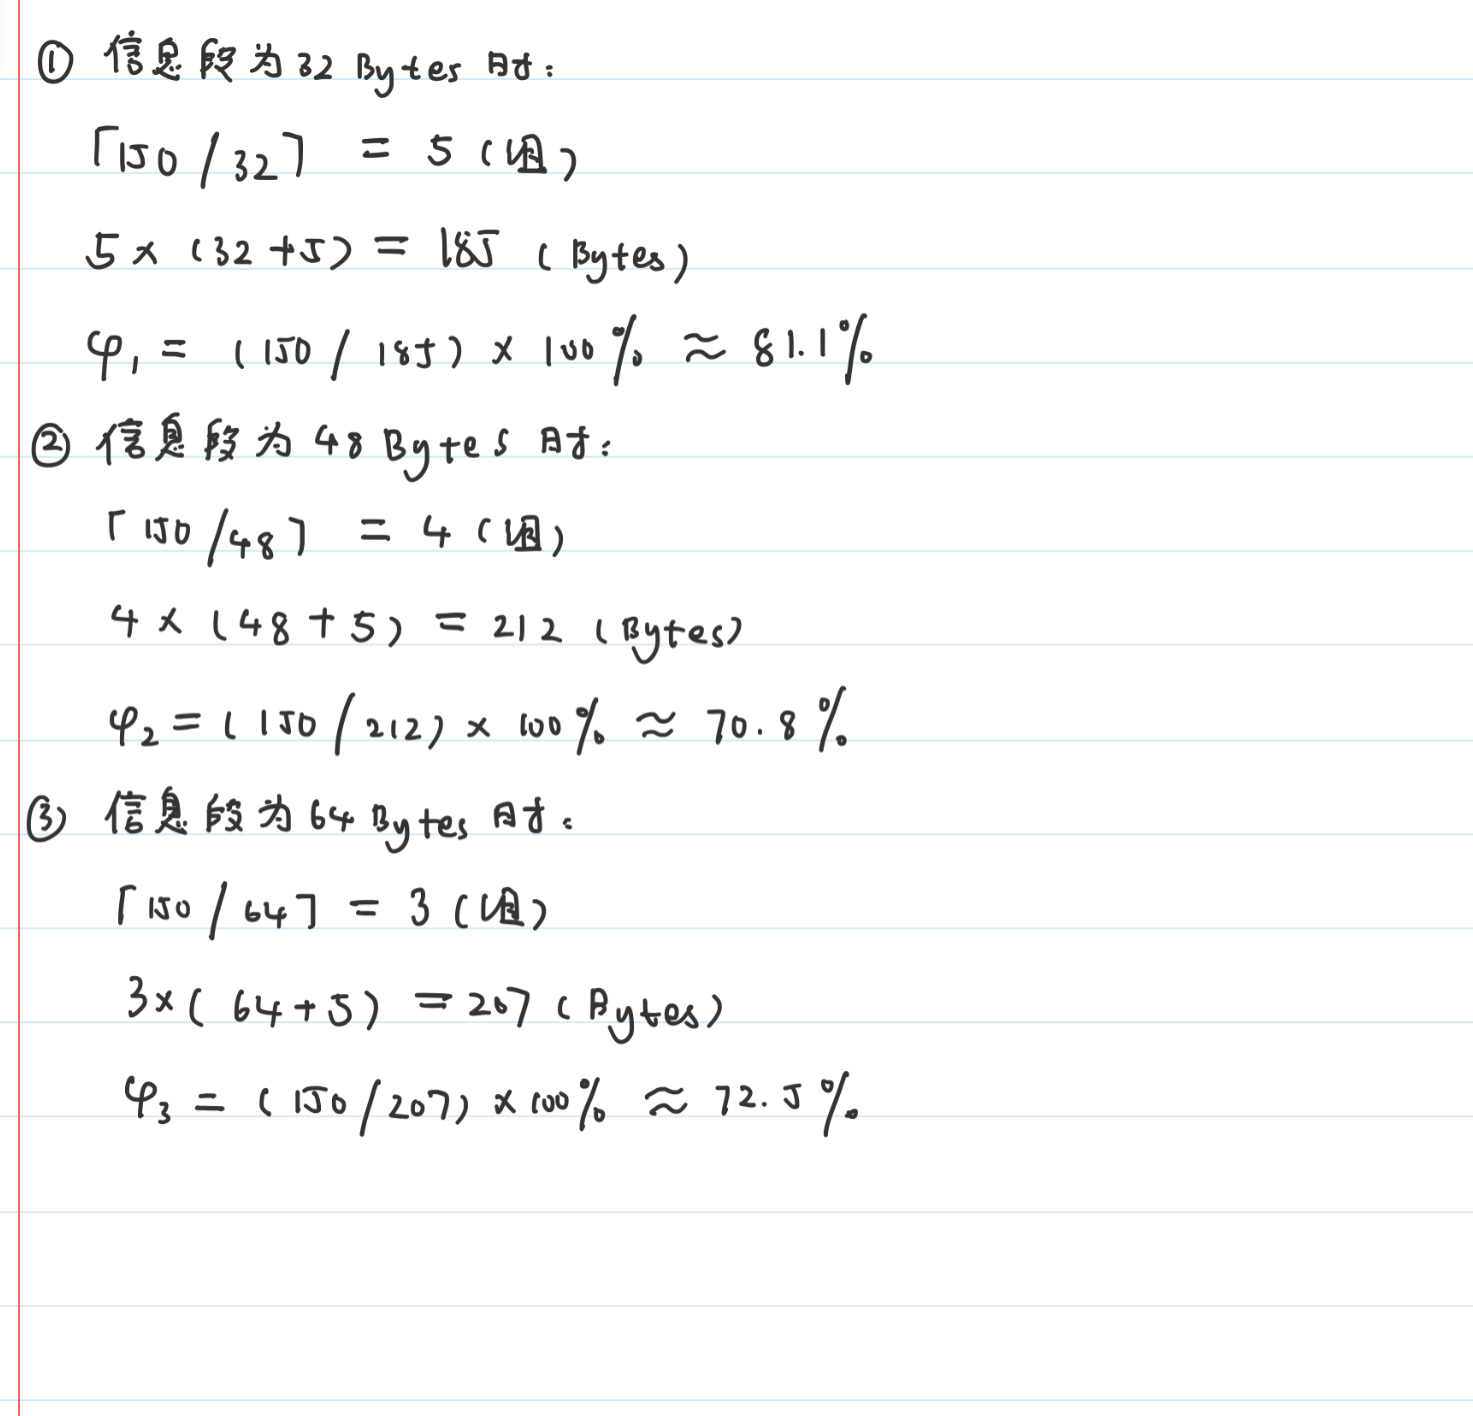 ① 信息段为32 Bytes 时:
⌈150/32⌉ = 5 (组)
5 × (32+5) = 185 (Bytes)
φ₁ = (150/185) × 100% ≈ 81.1%
② 信息段为48 Bytes 时:
⌈150/48⌉ = 4 (组)
4 × (48+5) = 212 (Bytes)
φ₂ = (150/212) × 100% ≈ 70.8%
③ 信息段为64 Bytes 时:
⌈150/64⌉ = 3 (组)
3×(64+5) = 207 (Bytes)
φ₃ = (150/207) × 100% ≈ 72.5%